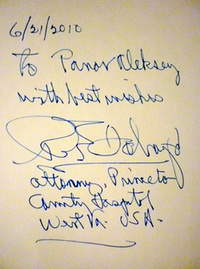 6/21/2010
To Panov Aleksey
with best wishes
attorney, Princeton
County
West Va. USA.